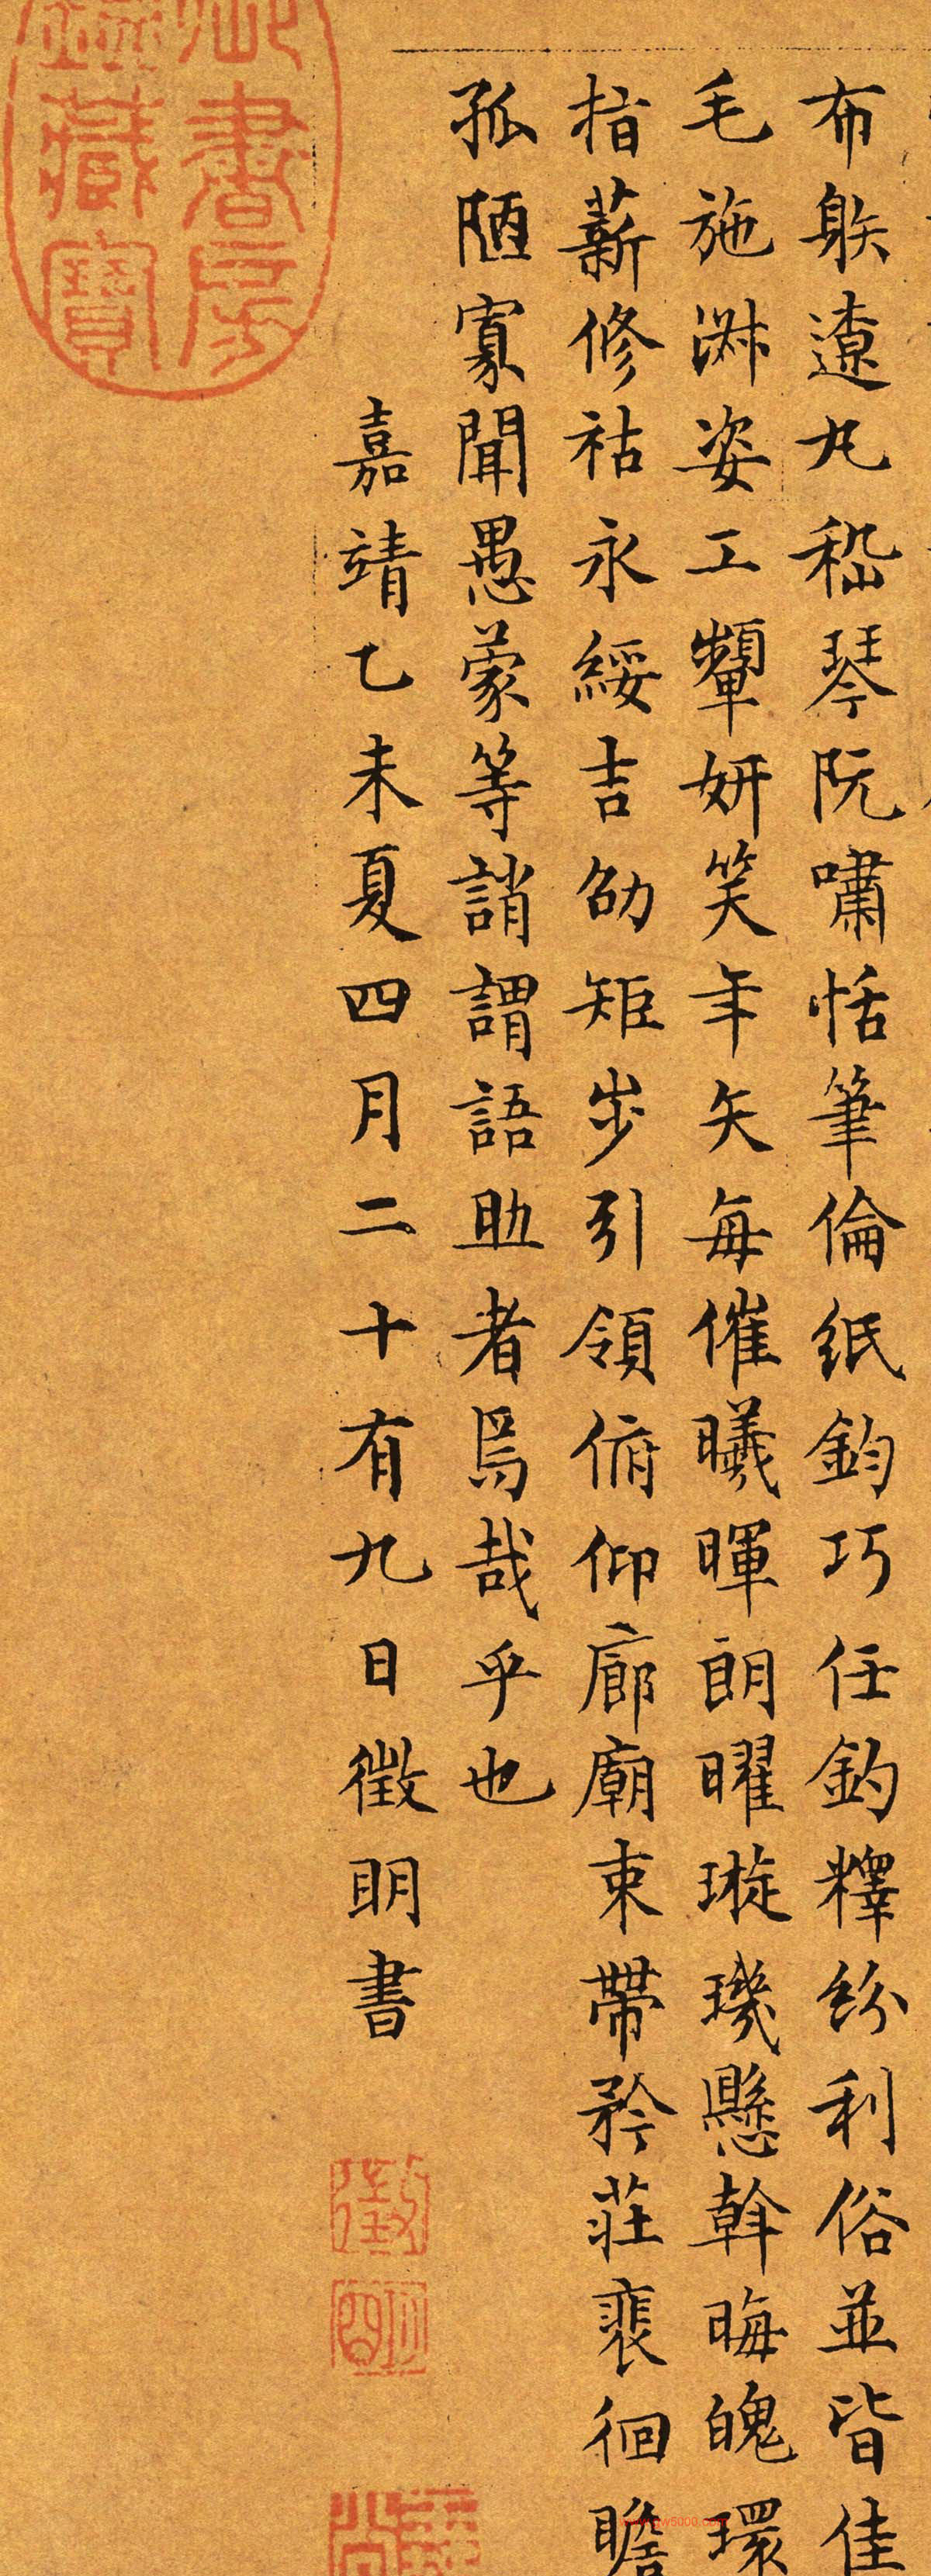 布䠶遼丸嵇琴阮嘯恬筆倫紙鈞巧任釣釋紛利俗並皆佳
毛施淑姿工顰妍笑年矢每催曦暉朗曜璇璣懸斡晦魄環
指薪修祜永綏吉劭矩步引領俯仰廊廟束帶矜莊裴徊瞻
孤陋寡聞愚蒙等誚謂語助者焉哉乎也
嘉靖乙未夏四月二十有九日徵明書
御書房
鑑藏寶
徵
明
www.yw5000.com